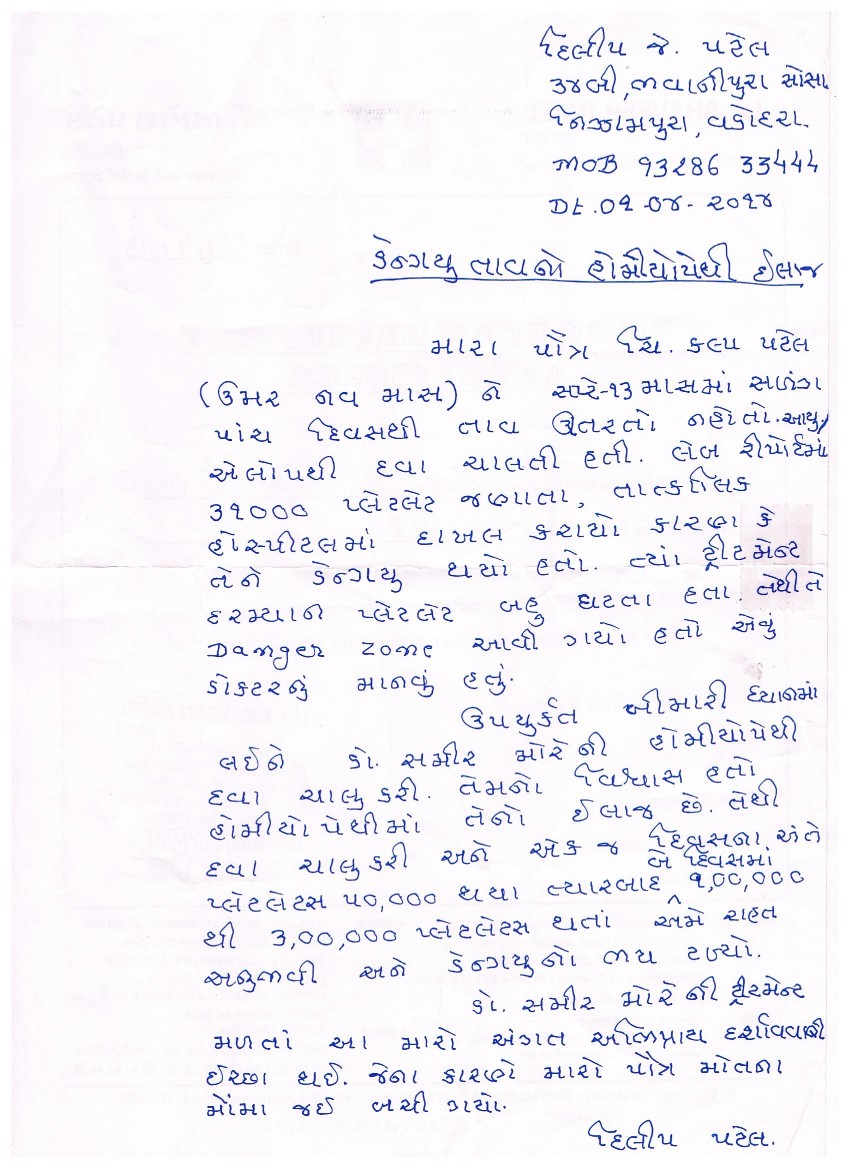 દિલીપ જે. પટેલ
૩૪બી, ભવાનીપુરા સોસા
નિઝામપુરા, વડોદરા.
MOB 93286 33444
Dt. 01-04-2014
ડેન્ગયુ તાવનો હોમીયોપેથી ઈલાજ
મારા પૌત્ર ચિ. કલ્પ પટેલ
(ઉમર નવ માસ) ને સપ્ટે-13 માસમાં સળંગ
પાંચ દિવસથી તાવ ઊતરતો નહોતો.
એલોપથી દવા ચાલતી હતી. લેબ રીપોર્ટમાં
31000 પ્લેટલેટ જણાતા, તાત્કાલિક
હોસ્પીટલમાં દાખલ કરાયો કારણ કે
તેને ડેન્ગયુ થયો હતો. ત્યાં ટ્રીટમેન્ટ
દરમ્યાન પ્લેટલેટ બહુ ઘટતા હતા. તેથી તે
Danger zone આવી ગયો હતો એવુ
ડોકટરનું માનવું હતું.
ઉપયુર્કત બીમારી ધ્યાનમાં
લઈને ડો. સમીર મોરે ની હોમીયોપેથી
દવા ચાલુ કરી. તેમનો વિશ્વાસ હતો
હોમીયોપેથીમાં તેનો ઈલાજ છે. તેથી
દવા ચાલુ કરી અને એક જ દિવસના અંતે
બે દિવસમાં
પ્લેટલેટસ ૫૦,૦૦૦ થયા ત્યારબાદ ૧,૦૦,૦૦૦
થી ૩,૦૦,૦૦૦ પ્લેટલેટસ થતાં અમે રાહત
અનુભવી અને ડેન્ગયુનો ભય ટળ્યો.
ડો. સમીર મોરે ની ટ્રીટમેન્ટ
મળતાં આ મારો અંગત અભિપ્રાય દર્શાવવાની
ઈચ્છા થઈ. જેના કારણે મારો પૌત્ર મોતના
મોંમા જઈ બચી ગયો.
દિલીપ પટેલ.